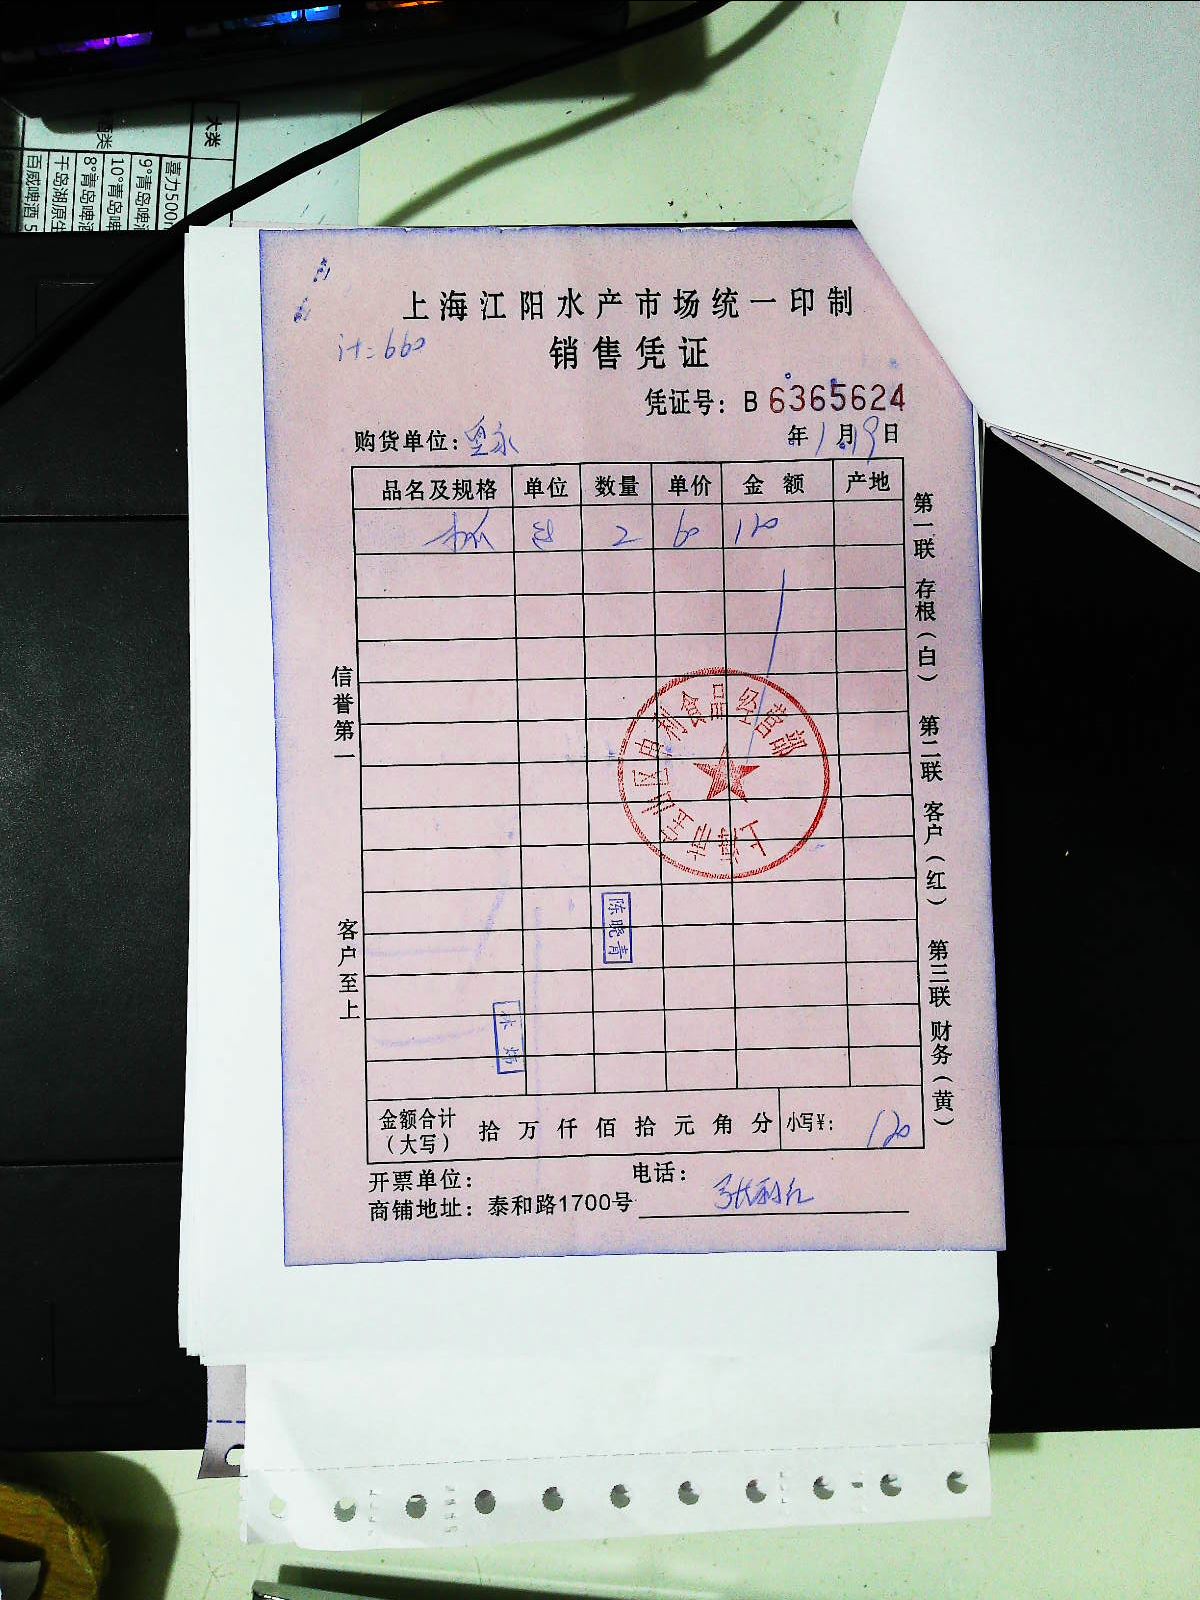 大类
喜力500
9°青岛啤
10°青岛啤
8°青岛啤酒
千岛湖原生
百威啤酒 5
上海江阳水产市场统一印制
计=660
销售凭证
凭证号：B 6365624
购货单位：
年1月19日
品名及规格 单位 数量 单价 金 额 产地
2 60 120
信誉第一
客户至上
第一联 存根（白） 第二联 客户（红） 第三联 财务（黄）
上海市宝山区申利食品经营部
陈晓青
林炳
金额合计（大写） 拾 万 仟 佰 拾 元 角 分 小写¥： 120
开票单位： 电话：
商铺地址：泰和路1700号